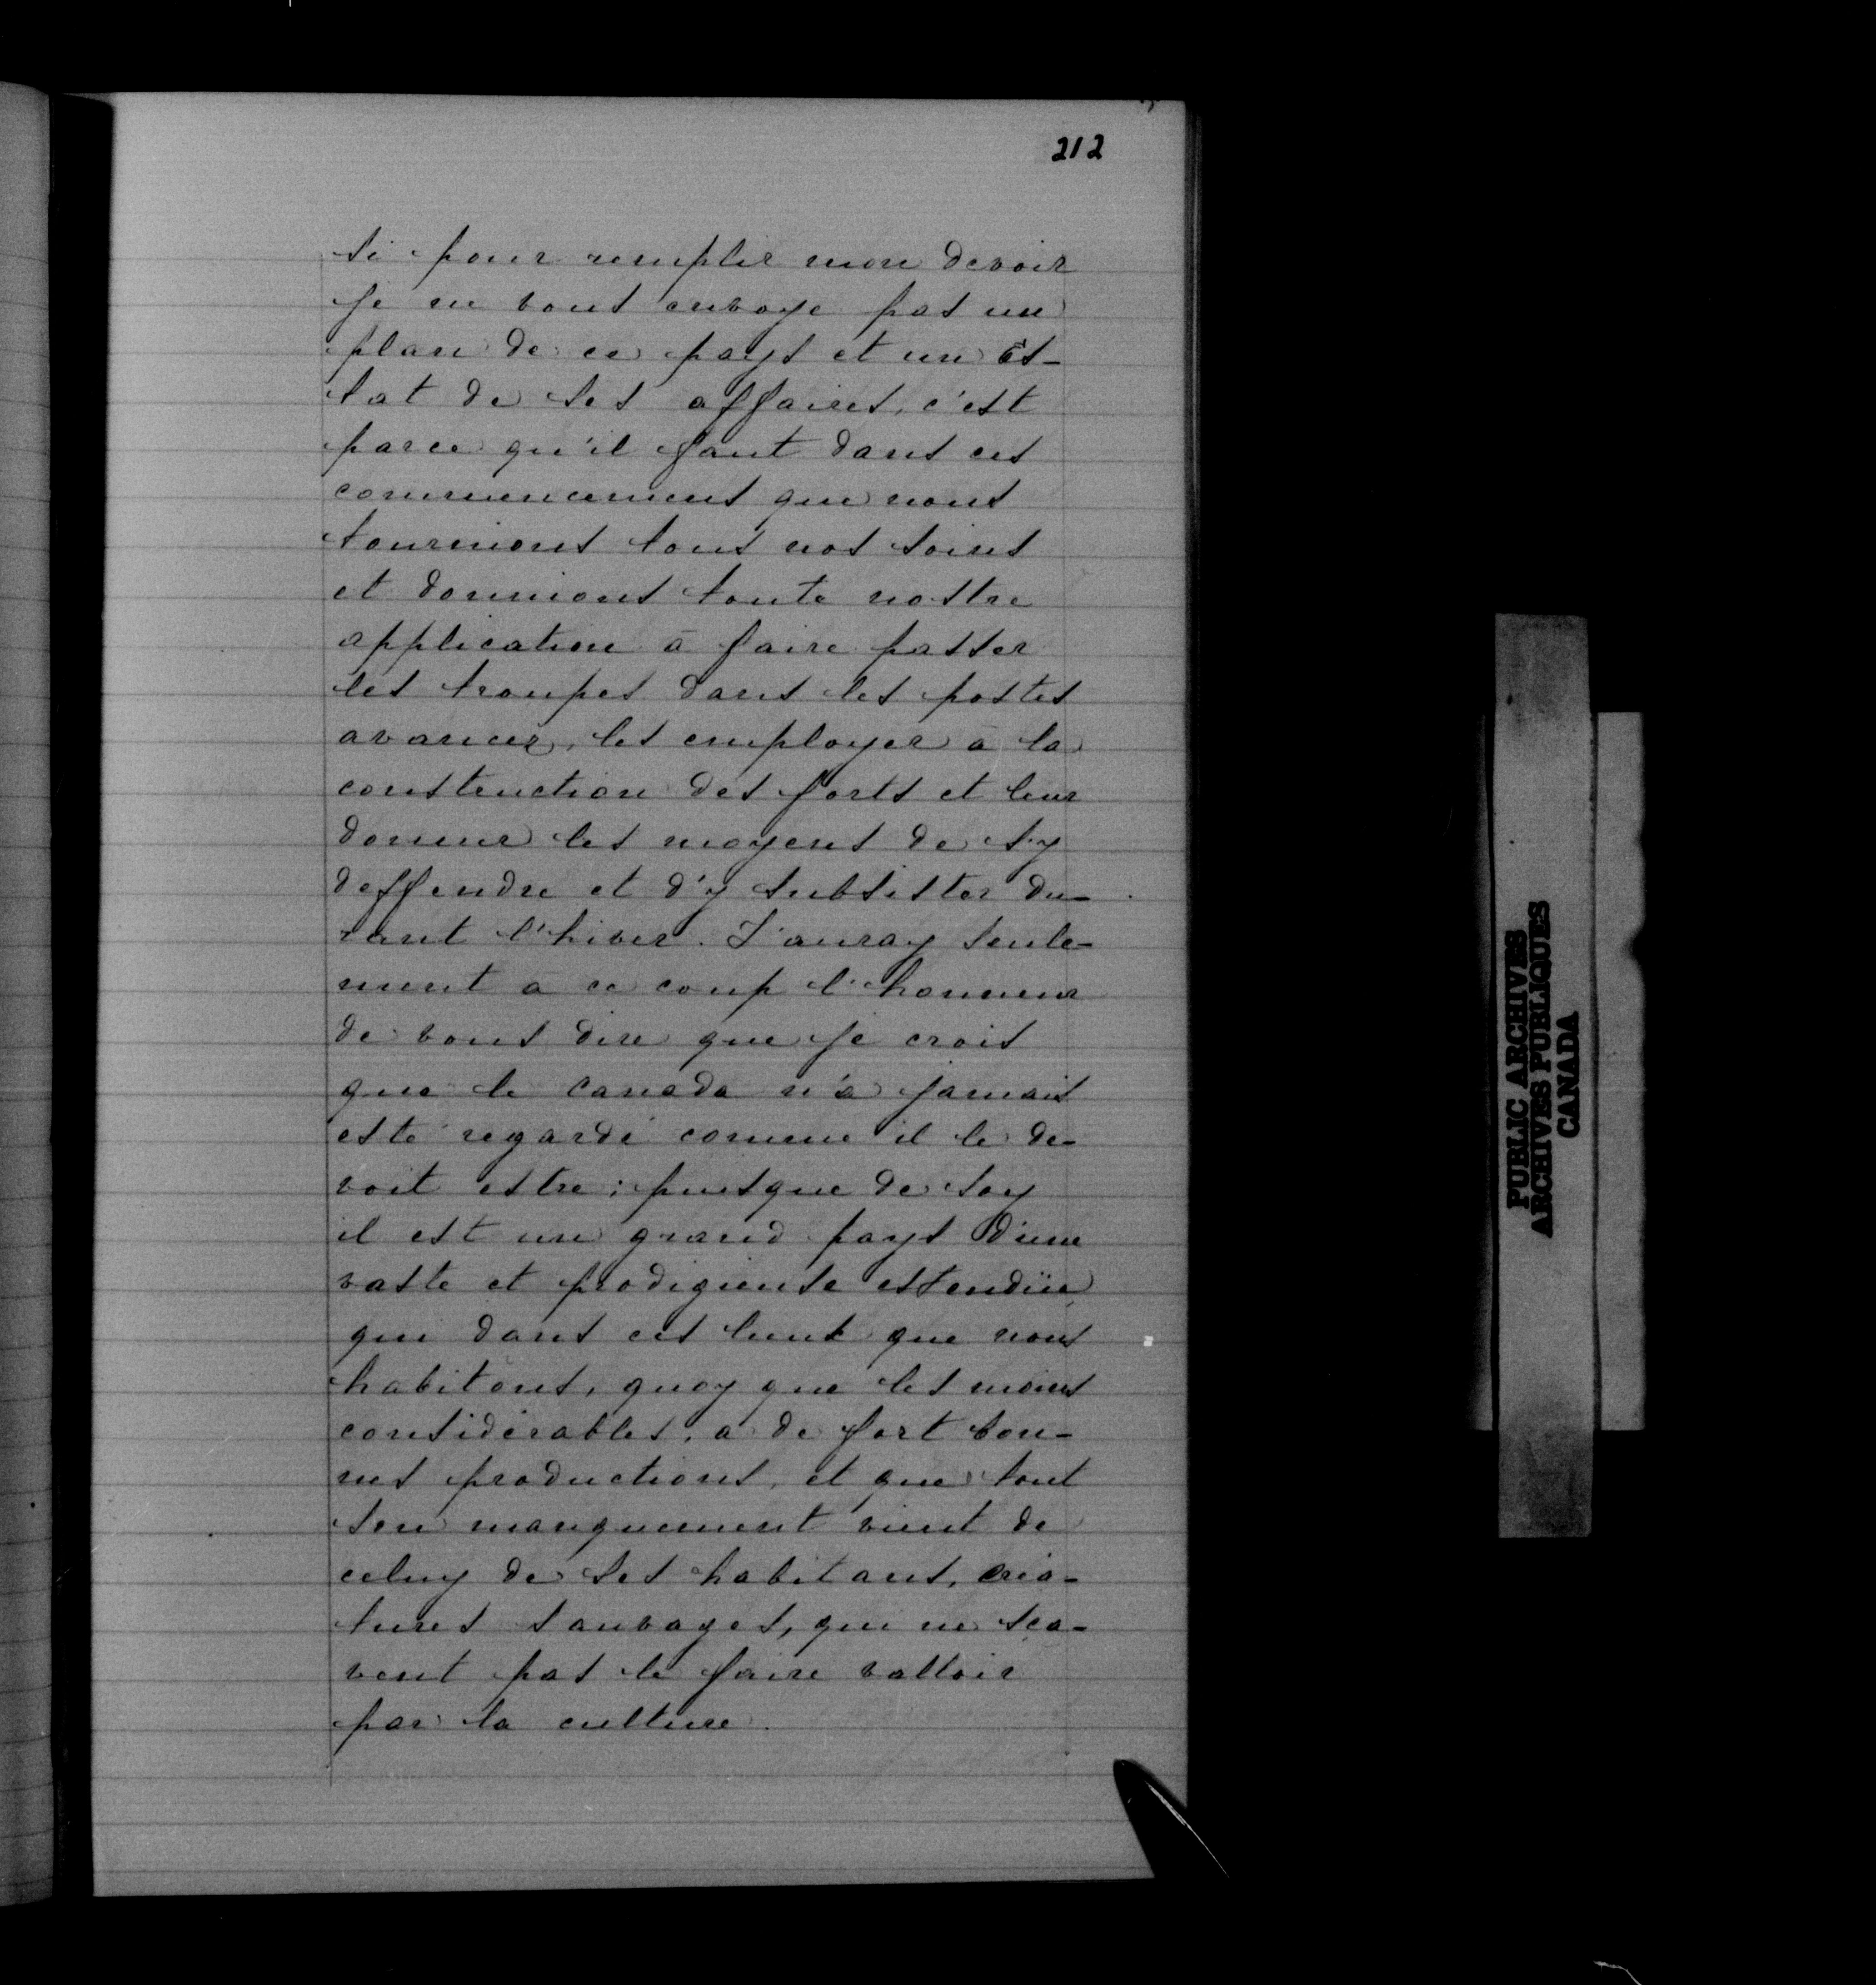 212
si pour remplir mon devoir
je ne vous envoye pas un
plan de ce pays et un Es-
tat de ses affaires, c'est
parce qu'il faut dans ces
commencemens que nous
tournions tous nos soins
et donnions toute nostre
application à faire passer
les troupes dans les postes
avancez, les employer à la
construction des forts et leur
donner les moyens de s'y
deffendre et d'y subsister du-
rant l'hiver. J'auray seule-
ment à ce coup l'honneur
de vous dire que je crois
que le Canada n'a jamais
esté regardé comme il le de-
voit estre; puisque de soy
il est un grand pays d'une
vaste et prodigieuse estendüe
qui dans ces lieux que nous
habitons, quoy que les moins
considérables, a de fort bon-
nes productions, et que tout
son manquement vient de
celuy de ses habitans, créa-
tures sauvages, qui ne sça-
vent pas le faire valloir
par la culture.
PUBLIC ARCHIVES
ARCHIVES PUBLIQUES
CANADA